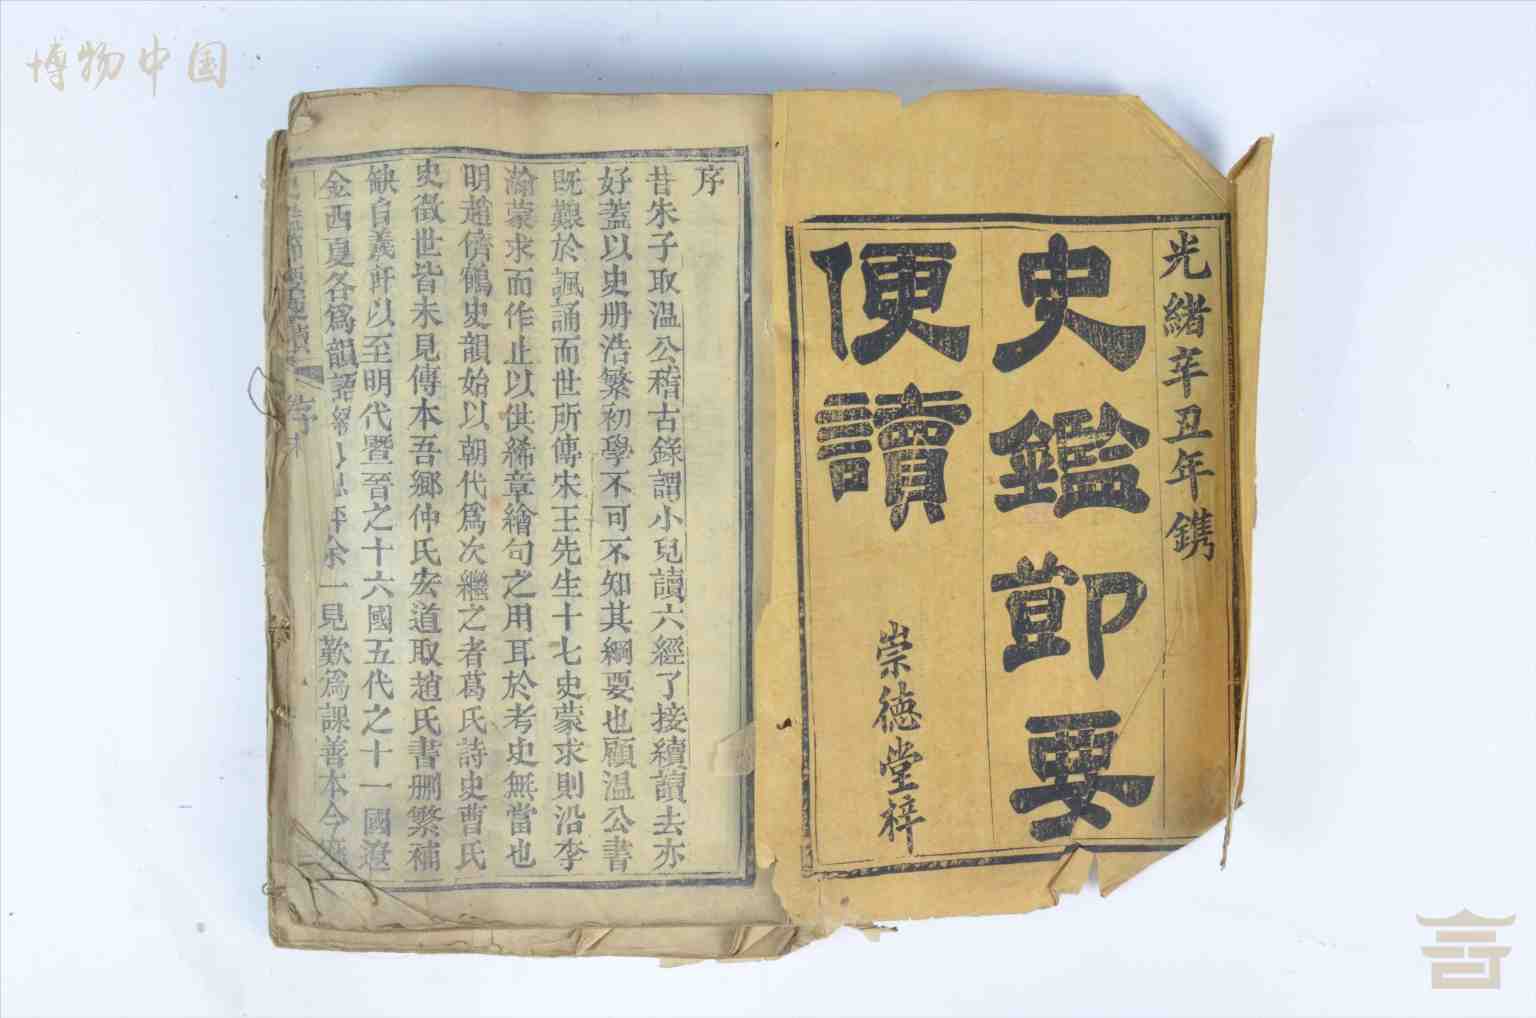 博物中国
光緒辛丑年鐫
史鑑節要
便讀
崇德堂梓
序
昔朱子取温公稽古錄謂小兒讀六經了接續讀去亦
好蓋以史册浩繁初學不可不知其綱要也顧温公書
既艱於諷誦而世所傳宋王先生十七史蒙求則沿李
瀚蒙求而作止以供絺章繪句之用耳於考史無當也
明趙儕鶴史韻始以朝代爲次繼之者葛氏詩史曹氏
史徵世皆未見傳本吾鄉仲氏宏道取趙氏書删繁補
缺自義軒以至明代暨晉之十六國五代之十一國遼
金西夏各爲韻語 余一見歎爲課善本今